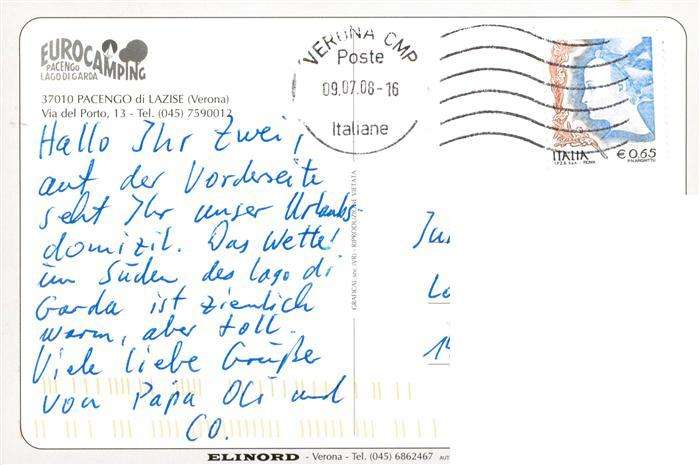 EUROCAMPING
PACENGO
LAGO DI GARDA
37010 PACENGO di LAZISE (Verona)
Via del Porto, 13 - Tel. (045) 7590012
VERONA CMP
Poste
09.07.08-16
Italiane
ITALIA
€ 0,65
I.P.Z.S. S.p.A. - ROMA
Hallo Ihr Zwei,
auf der Vorderseite
seht Ihr unser Urlaubs-
domizil. Das Wetter
im Süden des Lago di
Garda ist ziemlich
warm, aber toll.
Viele liebe Grüße
von Papa Oli und
CO.
RIPRODUZIONE VIETATA
ELINORD - Verona - Tel. (045) 6862467